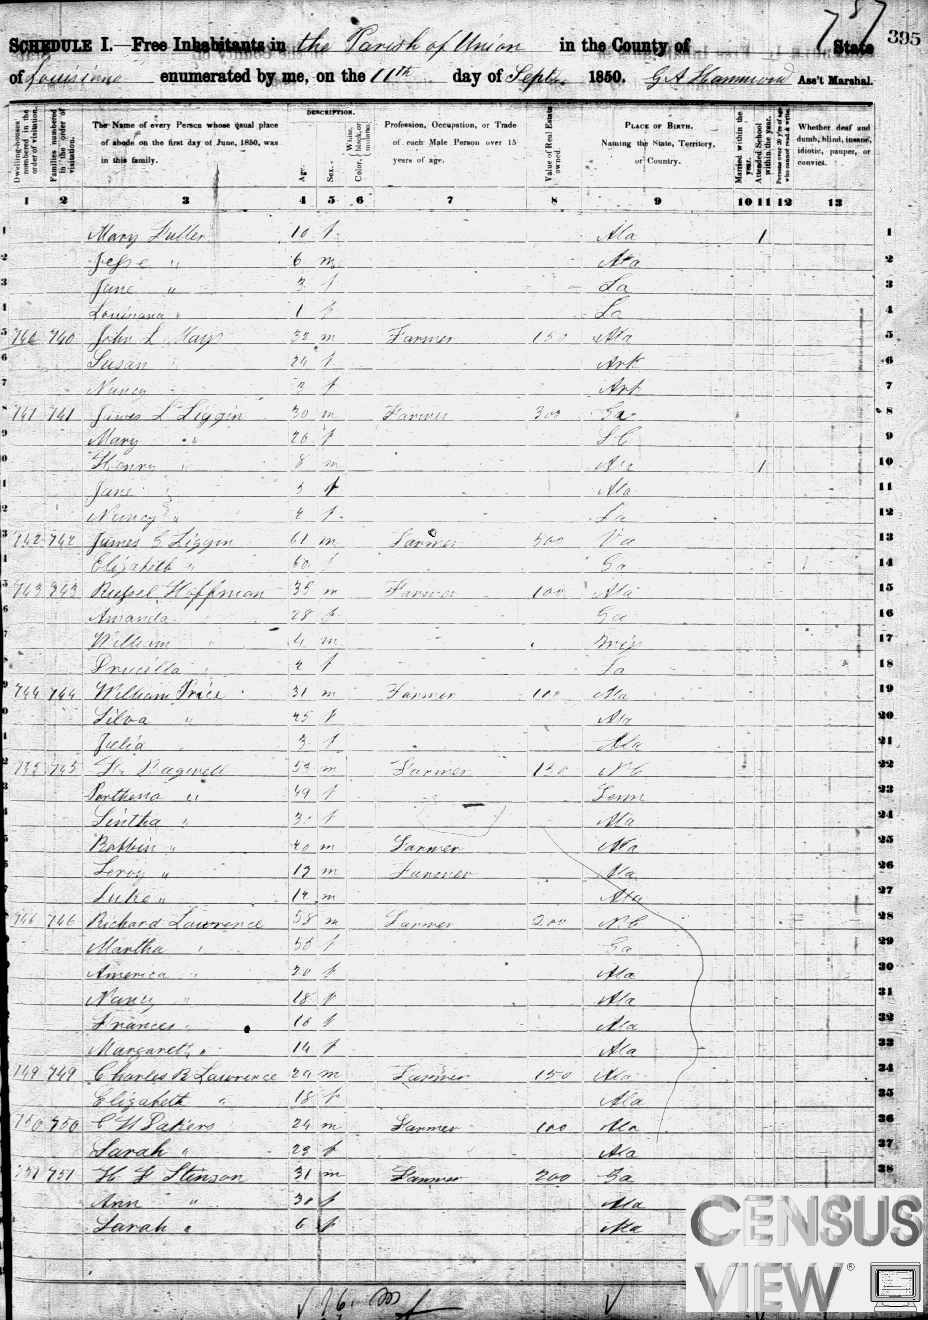 757
395
SCHEDULE I.—Free Inhabitants in the Parish of Union in the County of State
of Louisiana enumerated by me, on the 11th day of Septr 1850. G A Hammond Ass't Marshal.
Dwelling-houses numbered in the order of visitation.
Families numbered in the order of visitation.
The Name of every Person whose usual place of abode on the first day of June, 1850, was in this family.
DESCRIPTION.
Age.
Sex.
Color, White, black, or mulatto.
Profession, Occupation, or Trade of each Male Person over 15 years of age.
Value of Real Estate owned.
PLACE OF BIRTH.
Naming the State, Territory, or Country.
Married within the year.
Attended School within the year.
Persons over 20 y'rs of age who cannot read & write.
Whether deaf and dumb, blind, insane, idiotic, pauper, or convict.
1 2 3 4 5 6 7 8 9 10 11 12 13
1 Mary Fuller 10 f Ala 1 1
2 Jesse " 6 m Ala 2
3 Jane " 3 f La 3
4 Louisiana " 1 f La 4
5 740 740 John L Mays 32 m Farmer 150 Ala 5
6 Susan " 24 f Ark 6
7 Nancy 3 f Ark 7
8 741 741 James L Liggin 30 m Farmer 300 Ga 8
9 Mary " 26 f S C 9
10 Henry " 8 m 1 10
11 Jane " f Ala 11
12 Nancy " 2 f La 12
13 742 742 James Liggin 61 m Farmer 500 Va 13
14 Elizabeth " 60 f Ga 14
15 743 743 Russel Hoffman 35 m Farmer 100 Ala 15
16 Amanda 28 f Ga 16
17 William " 4 m Miss 17
18 Prucilla " 2 f La 18
19 744 744 William Price 31 m Farmer 100 Ala 19
20 Silva " 25 f Ala 20
21 Julia 3 f Ala 21
22 745 745 Bagwell 53 m Farmer 150 N C 22
23 Parthena " 49 f Tenn 23
24 Sintha " f Ala 24
25 Robbin " 20 m Farmer Ala 25
26 Leroy " m Farmer Ala 26
27 Luke " 14 m Ala 27
28 746 746 Richard Lawrence 58 m Farmer 200 N C 28
29 Martha " 50 f Ga 29
30 America " 20 f Ala 30
31 Nancy " 18 f Ala 31
32 Frances " 16 f Ala 32
33 Margarett " 14 f Ala 33
34 749 749 Charles B Lawrence 29 m Farmer 150 Ala 34
35 Elizabeth " 18 f Ala 35
36 750 750 C W 24 m Farmer 100 Ala 36
37 Sarah " 23 f Ala 37
38 751 751 H F Stinson 31 m Farmer 200 Ga 38
Ann " 30 f Ala
Sarah " 6 f Ala
CENSUS
VIEW®